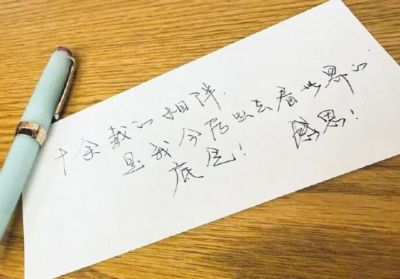 十余载的相伴
是我今后出去看世界的
底气! 感恩!